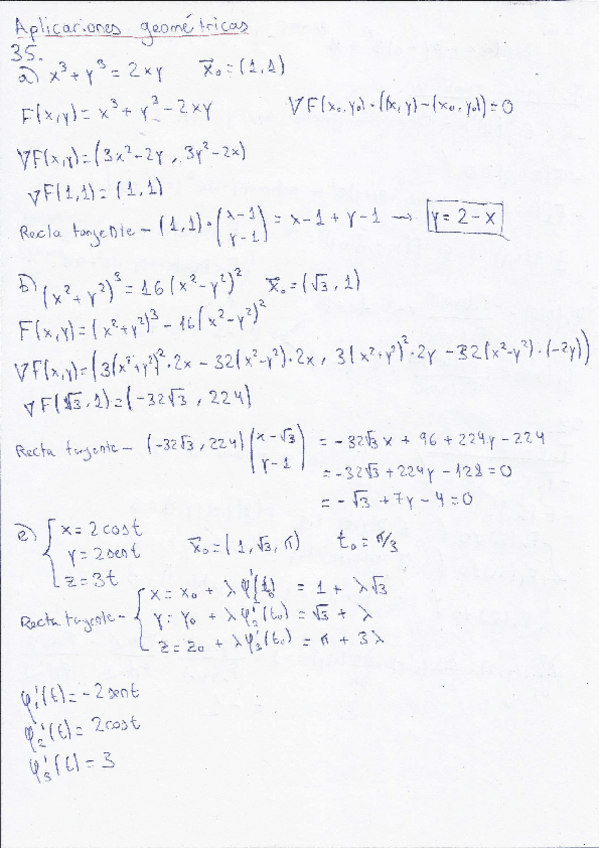 Aplicaciones geométricas
35.
a) x³ + y³ = 2xy   x̄₀ = (1,1)
F(x,y) = x³ + y³ - 2xy   ∇F(x₀,y₀)·((x,y)-(x₀,y₀)) = 0
∇F(x,y) = (3x²-2y, 3y²-2x)
∇F(1,1) = (1,1)
Recta tangente - (1,1)·(x-1 y-1) = x-1 + y-1 → y = 2-x
b) (x² + y²)³ = 16(x²-y²)²   x̄₀ = (√3, 1)
F(x,y) = (x²+y²)³ - 16(x²-y²)²
∇F(x,y) = (3(x²+y²)²·2x - 32(x²-y²)·2x, 3(x²+y²)²·2y - 32(x²-y²)·(-2y))
∇F(√3,1) = (-32√3, 224)
Recta tangente - (-32√3, 224)(x-√3 y-1) = -32√3x + 96 + 224y - 224
= -32√3 + 224y - 128 = 0
= -√3 + 7y - 4 = 0
e) { x = 2cost
y = 2sent   x̄₀ = (1, √3, π)   t₀ = π/3
z = 3t
Recta tangente - { x = x₀ + λφ₁'(t₀) = 1 + λ√3
y = y₀ + λφ₂'(t₀) = √3 + λ
z = z₀ + λφ₃'(t₀) = π + 3λ
φ₁'(t) = -2sent
φ₂'(t) = 2cost
φ₃'(t) = 3